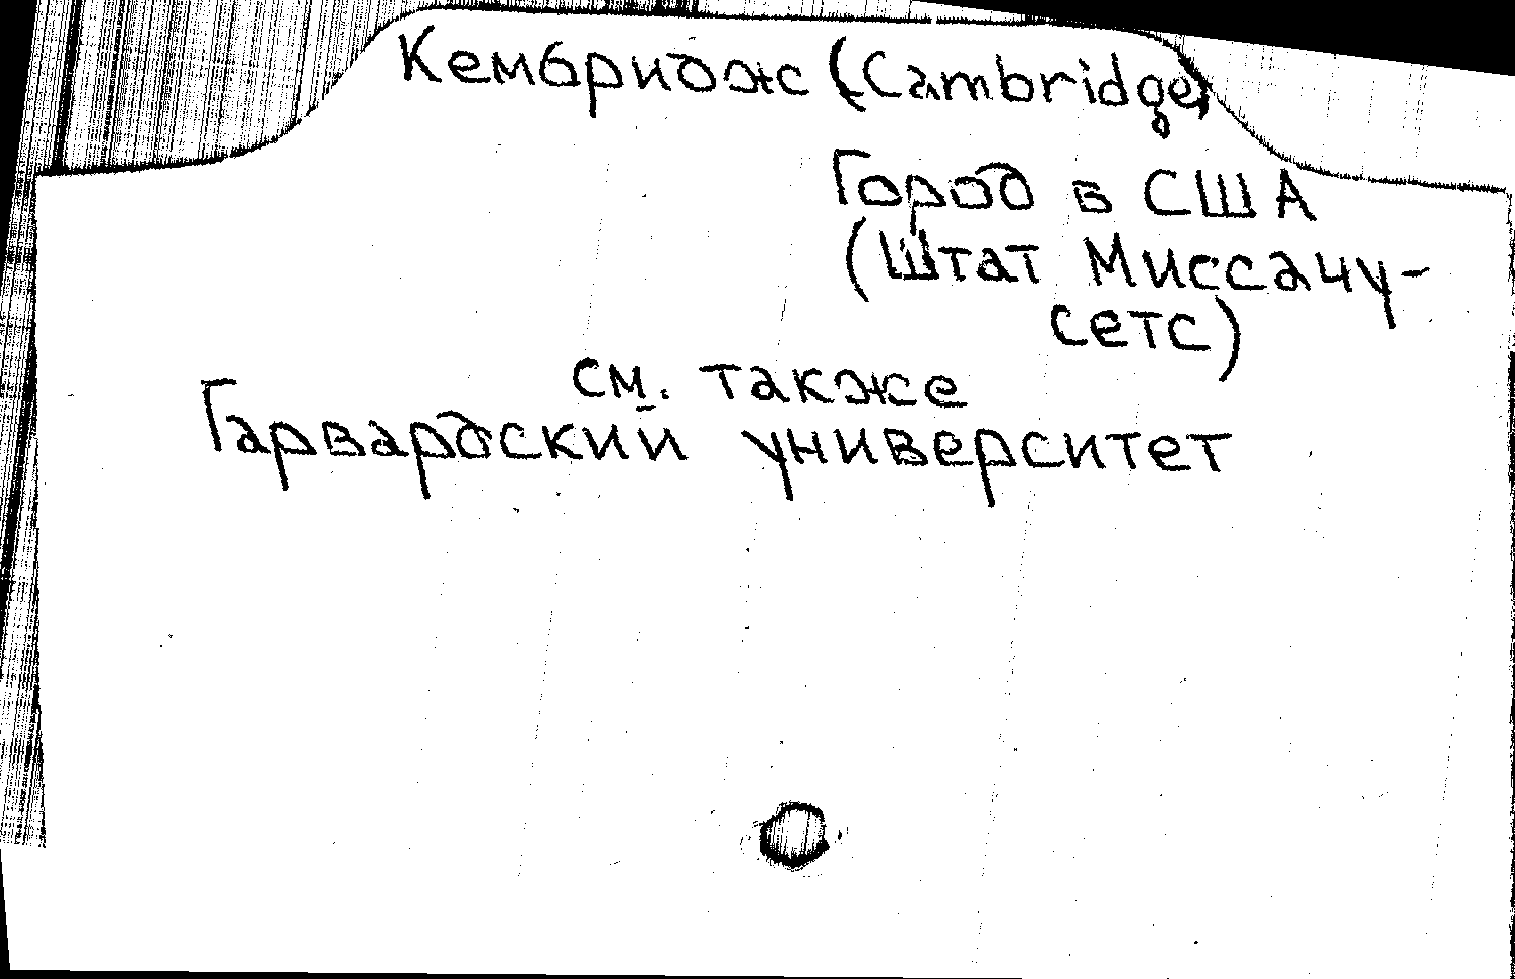 Кембридж (Cambridge)
Город в США
(Штат Миссачу-
сетс)
см. также
Гарвардский университет